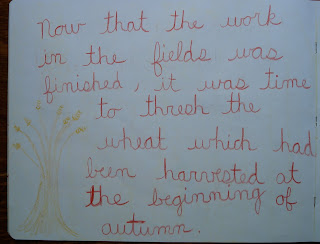 Now that the work
in the fields was
finished, it was time
to thresh the
wheat which had
been harvested at
the beginning of
autumn.